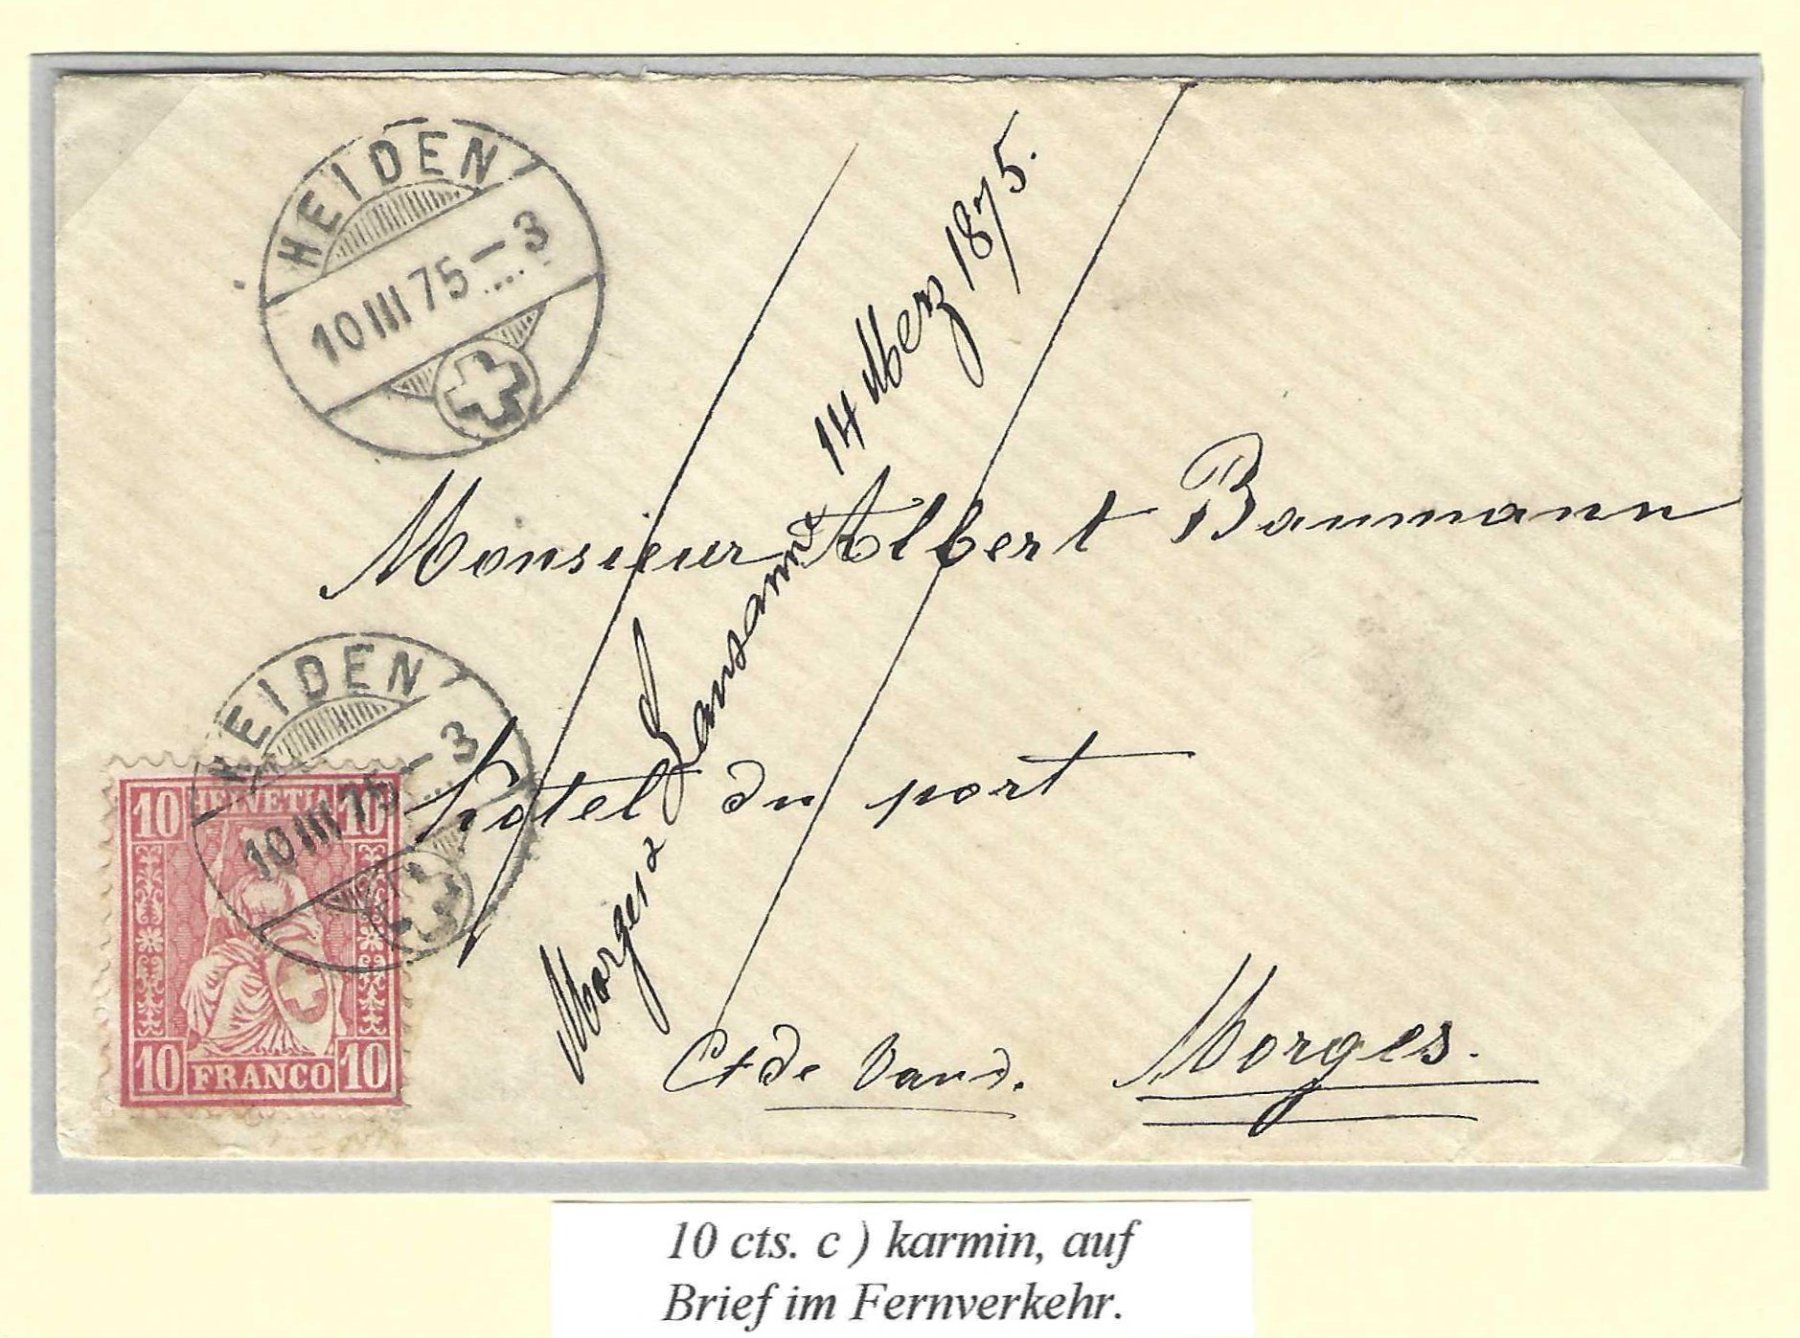 HEIDEN
10 III 75 – 3
14 Merz 1875.
Monsieur Albert Baumann
Morges & Lausanne
hotel du port
HEIDEN
10 III 75 – 3
10 HELVETIA 10
10 FRANCO 10
Ct de Vaud.
Morges.
10 cts. c ) karmin, auf
Brief im Fernverkehr.